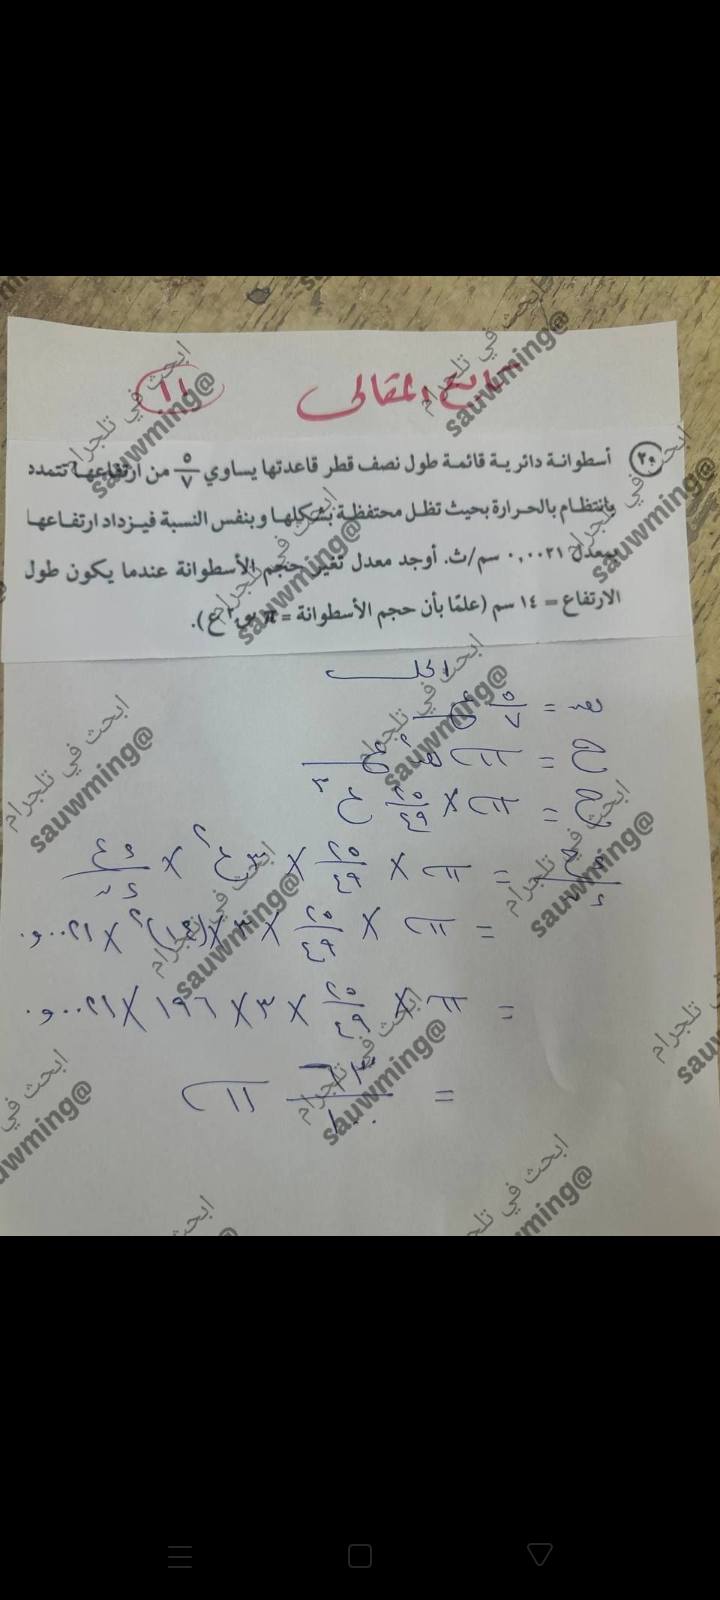 تابع المقالى ١١
٢٠ أسطوانة دائرية قائمة طول نصف قطر قاعدتها يساوي ٥/٧ من ارتفاعها تتمدد
بانتظام بالحرارة بحيث تظل محتفظة بشكلها وبنفس النسبة فيزداد ارتفاعها
بمعدل ٠,٠٠٢١ سم/ث. أوجد معدل تغير حجم الأسطوانة عندما يكون طول
الارتفاع = ١٤ سم (علمًا بأن حجم الأسطوانة = π نق٢ ع).
الحل
نق = ٥/٧ ع
ح = π نق٢ ع
ح = π × ٢٥/٤٩ ع٣
ءح/ءن = π × ٢٥/٤٩ × ٣ع٢ × ءع/ءن
= π × ٢٥/٤٩ × ٣ × (١٤)٢ × ٠,٠٠٢١
= π × ٢٥/٤٩ × ٣ × ١٩٦ × ٠,٠٠٢١
= ٦٣/١٠٠ π
ابحث في تلجرام
@sauwming